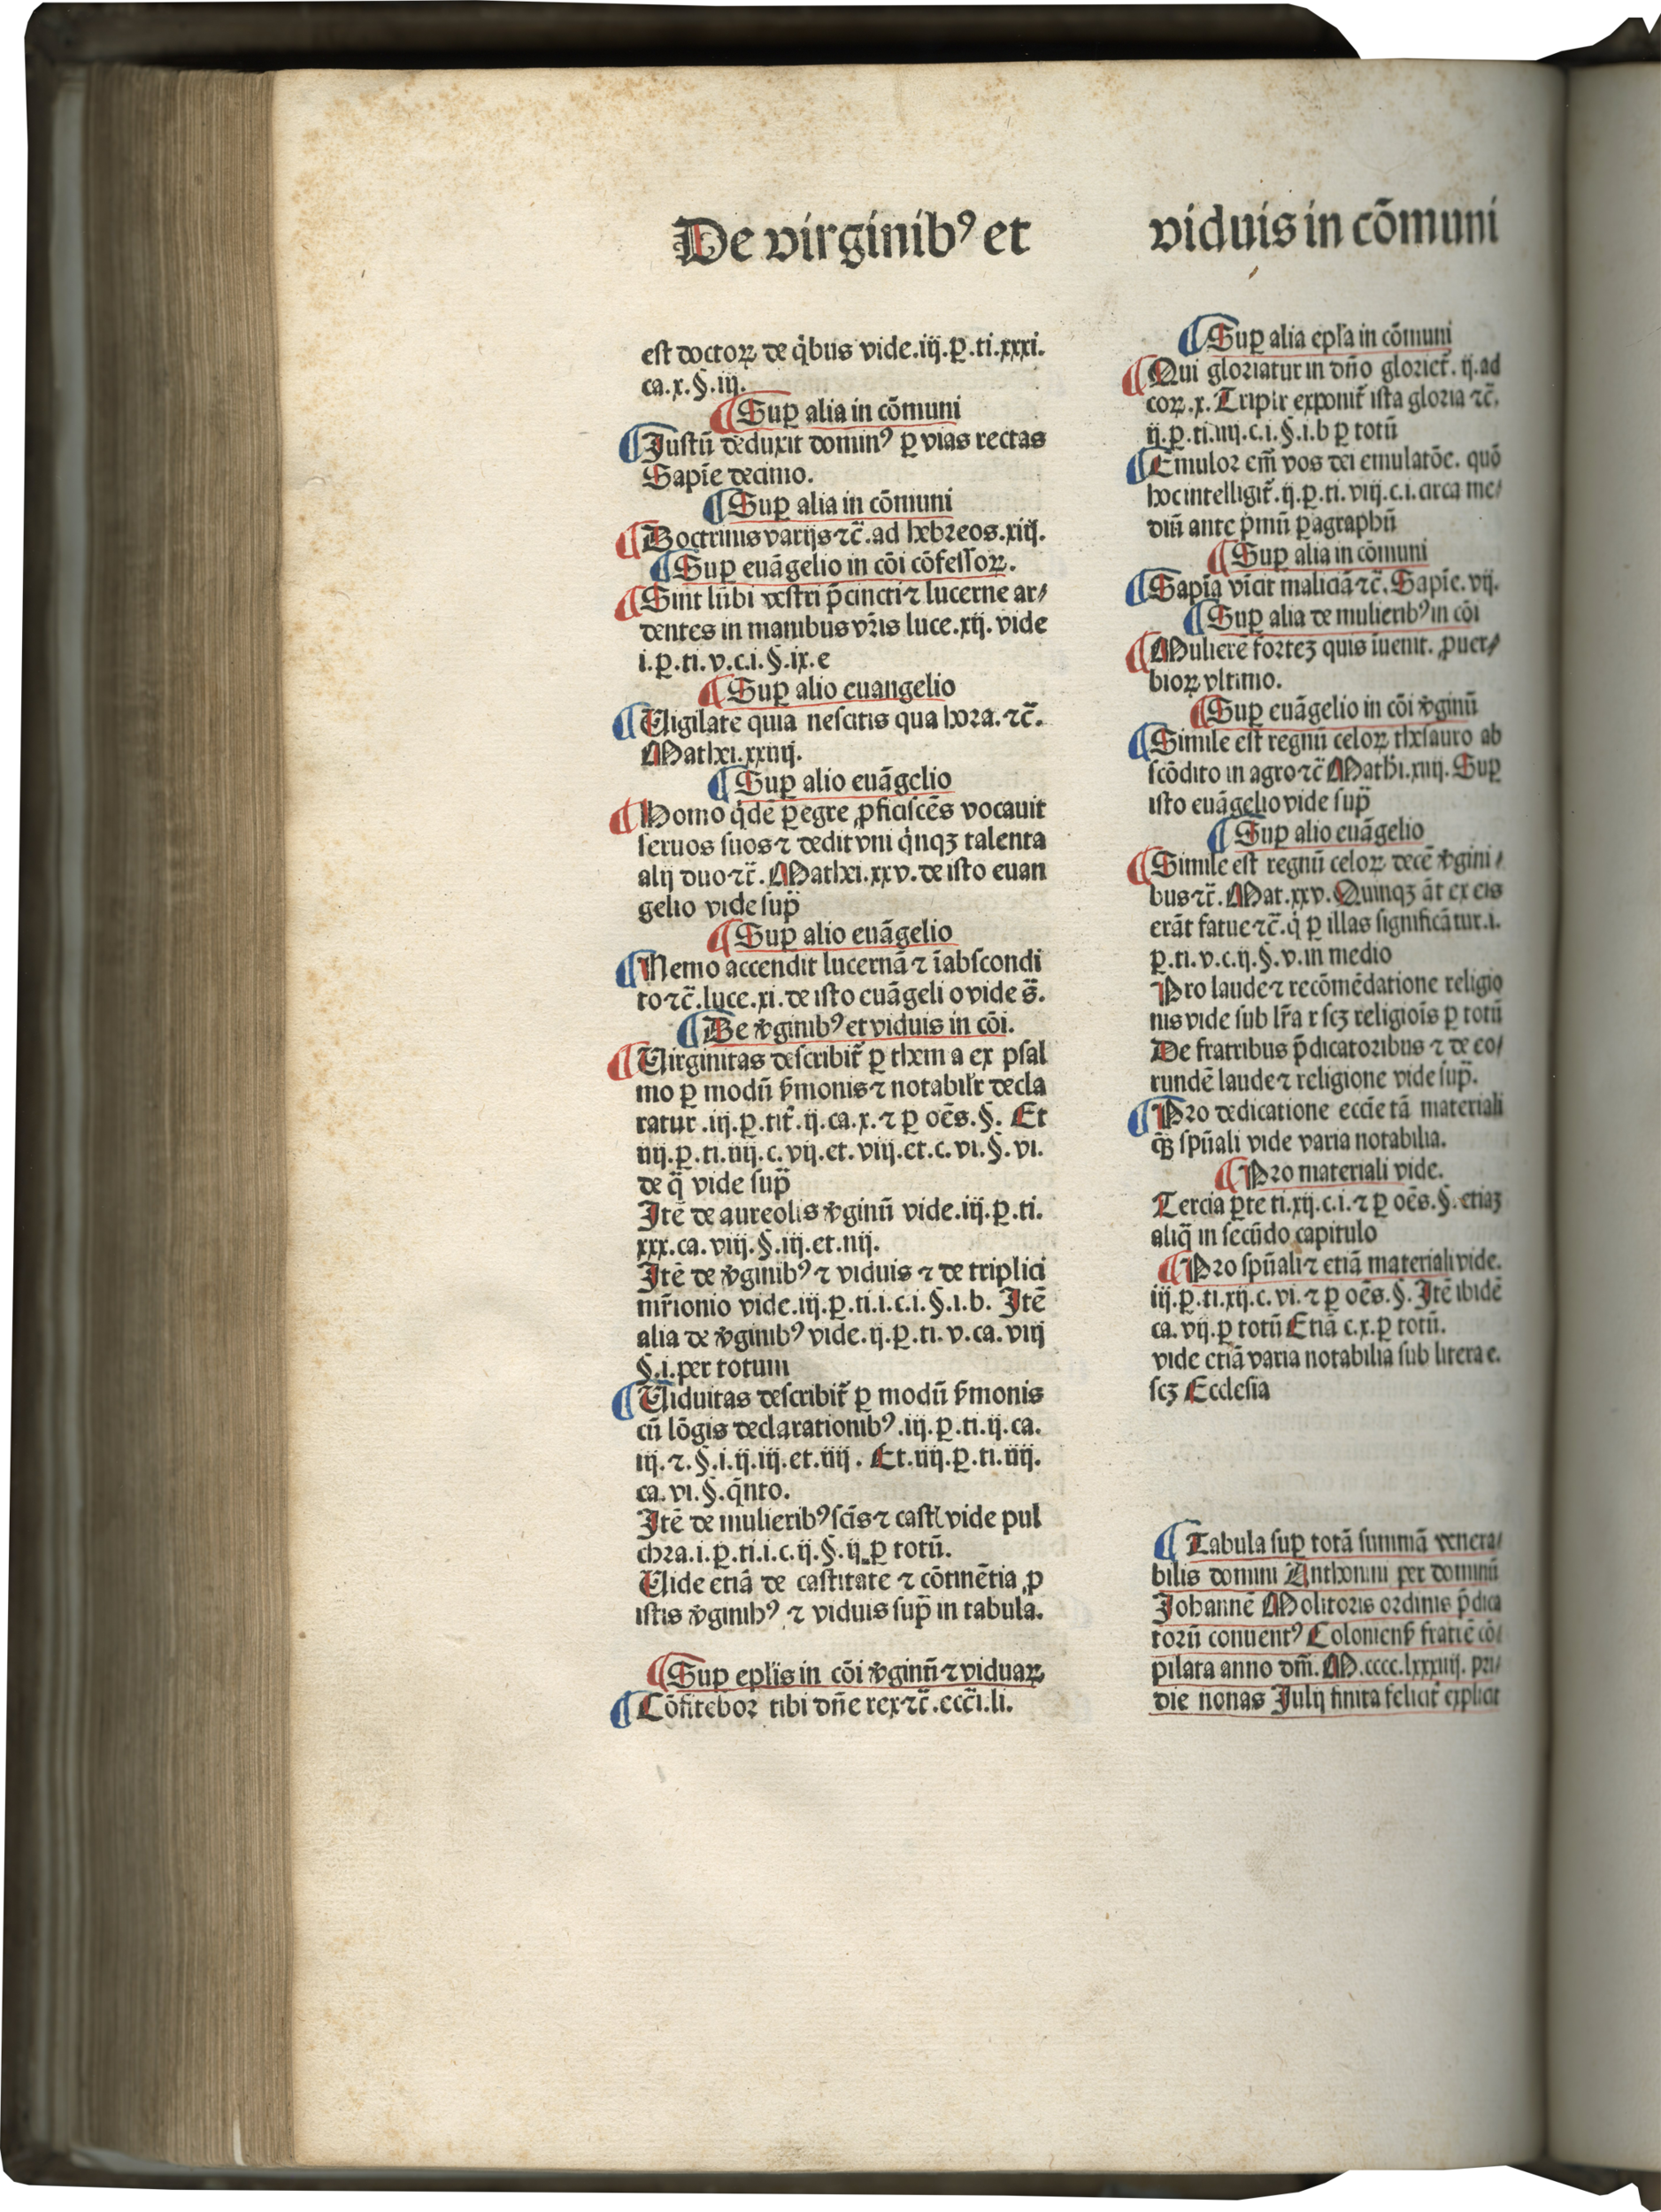 De virginibꝰ et
viduis in cōmuni
est doctoꝝ de q̇bus vide.iij.ꝑ.ti.xxxi.
ca.x.§.iij.
¶ Suꝑ alia in cōmuni
¶ Justū deduxit dominꝰ ꝑ vias rectas
Sapīe decimo.
¶ Suꝑ alia in cōmuni
¶ Doctrinis varijs ⁊c̄.ad hebreos.xiij.
¶ Suꝑ euāgelio in cōi cōfessoꝝ.
¶ Sint lūbi vestri p̄cincti ⁊ lucerne ar/
dentes in manibus vr̄is luce.xij. vide
i.ꝑ.ti.v.c.i.§.ix.e
¶ Suꝑ alio euangelio
¶ Uigilate quia nescitis qua hora.⁊c̄.
Mathei.xxiiij.
¶ Suꝑ alio euāgelio
¶ Homo q̇dē ꝑegre ꝓficiscēs vocauit
seruos suos ⁊ dedit vni q̇nqꝫ talenta
alij duo ⁊c̄. Mathei.xxv.de isto euan
gelio vide sup̄
¶ Suꝑ alio euāgelio
¶ Nemo accendit lucernā ⁊ ī abscondi
to ⁊c̄.luce.xi.de isto euāgeli o vide s̄.
¶ De v̄ginibꝰ et viduis in cōi.
¶ Uirginitas describit̄ ꝑ them a ex psal
mo ꝑ modū s̄monis ⁊ notabilr̄ decla
ratur.iij.ꝑ.tit̄.ij.ca.x.⁊ ꝑ oēs.§. Et
iiij.ꝑ.ti.iiij.c.vij.et.viij.et.c.vi.§.vi.
de q̄ vide sup̄
Itē de aureolis v̄ginū vide.iij.ꝑ.ti.
xxx.ca.viij.§.iij.et.iiij.
Itē de v̄ginibꝰ ⁊ viduis ⁊ de triplici
mr̄ionio vide.iij.ꝑ.ti.i.c.i.§.i.b. Itē
alia de v̄ginibꝰ vide.ij.ꝑ.ti.v.ca.viij
§.i.per totum
¶ Uiduitas describit̄ ꝑ modū s̄monis
cū lōgis declarationibꝰ.iij.ꝑ.ti.ij.ca.
iij.⁊.§.i.ij.iij.et.iiij. Et.iiij.ꝑ.ti.iiij.
ca.vi.§.q̇nto.
Itē de mulieribꝰ scīs ⁊ castꝭ vide pul
chra.i.ꝑ.ti.i.c.ij.§.ij.ꝑ totū.
Uide etiā de castitate ⁊ cōtinētia ꝓ
istis v̄ginibꝰ ⁊ viduis sup̄ in tabula.
¶ Suꝑ epl̄is in cōi v̄ginū ⁊ viduaꝝ
¶ Cōfitebor tibi dn̄e rex ⁊c̄.ecc̄i.li.
¶ Suꝑ alia epl̄a in cōmuni
¶ Qui gloriatur in dn̄o gloriet̄.ij.ad
coꝝ.x. Tripl̄r exponit̄ ista gloria ⁊c̄.
ij.ꝑ.ti.iiij.c.i.§.i.b ꝑ totū
¶ Emulor em̄ vos dei emulatōe. quō
hoc intelligit̄.ij.ꝑ.ti.viij.c.i.circa me/
diū ante p̄mū ꝑagraphū
¶ Suꝑ alia in cōmuni
¶ Sapīa vīcit maliciā ⁊c̄. Sapīe.vij.
¶ Suꝑ alia de mulieribꝰ in cōi
¶ Mulierē forteꝫ quis īuenit. ꝓuer/
bioꝝ vltimo.
¶ Suꝑ euāgelio in cōi v̄ginū
¶ Simile est regnū celoꝝ thesauro ab
scōdito in agro ⁊c̄ Mathi.xiij. Suꝑ
isto euāgelio vide sup̄
¶ Suꝑ alio euāgelio
¶ Simile est regnū celoꝝ decē v̄gini/
bus ⁊c̄. Mat.xxv. Quinqꝫ āt ex eis
erāt fatue ⁊c̄.q̇ ꝑ illas significātur.i.
ꝑ.ti.v.c.ij.§.v.in medio
Pro laude ⁊ recōmēdatione religio
nis vide sub lr̄a r scꝫ religiōis ꝑ totū
De fratribus p̄dicatoribus ⁊ de eo/
rundē laude ⁊ religione vide sup̄.
¶ Pro dedicatione eccīe tā materiali
q̄ꝫ spūali vide varia notabilia.
¶ Pro materiali vide.
Tercia ꝑte ti.xij.c.i.⁊ ꝑ oēs.§.etiaꝫ
aliq̄ in secūdo capitulo
¶ Pro spūali ⁊ etiā materiali vide.
iij.ꝑ.ti.xij.c.vi.⁊ ꝑ oēs.§. Itē ibidē
ca.vij.ꝑ totū Etiā c.x.ꝑ totū.
vide etiā varia notabilia sub litera e.
scꝫ Ecclesia
¶ Tabula suꝑ totā summā venera/
bilis domini Anthonini per dominū
Johannē Molitoris ordinis p̄dica
torū conuentꝰ Coloniens̄ fratrē cō/
pilata anno dn̄i. M.cccc.lxxxiiij. pri/
die nonas Julij finita felicit̄ explicit